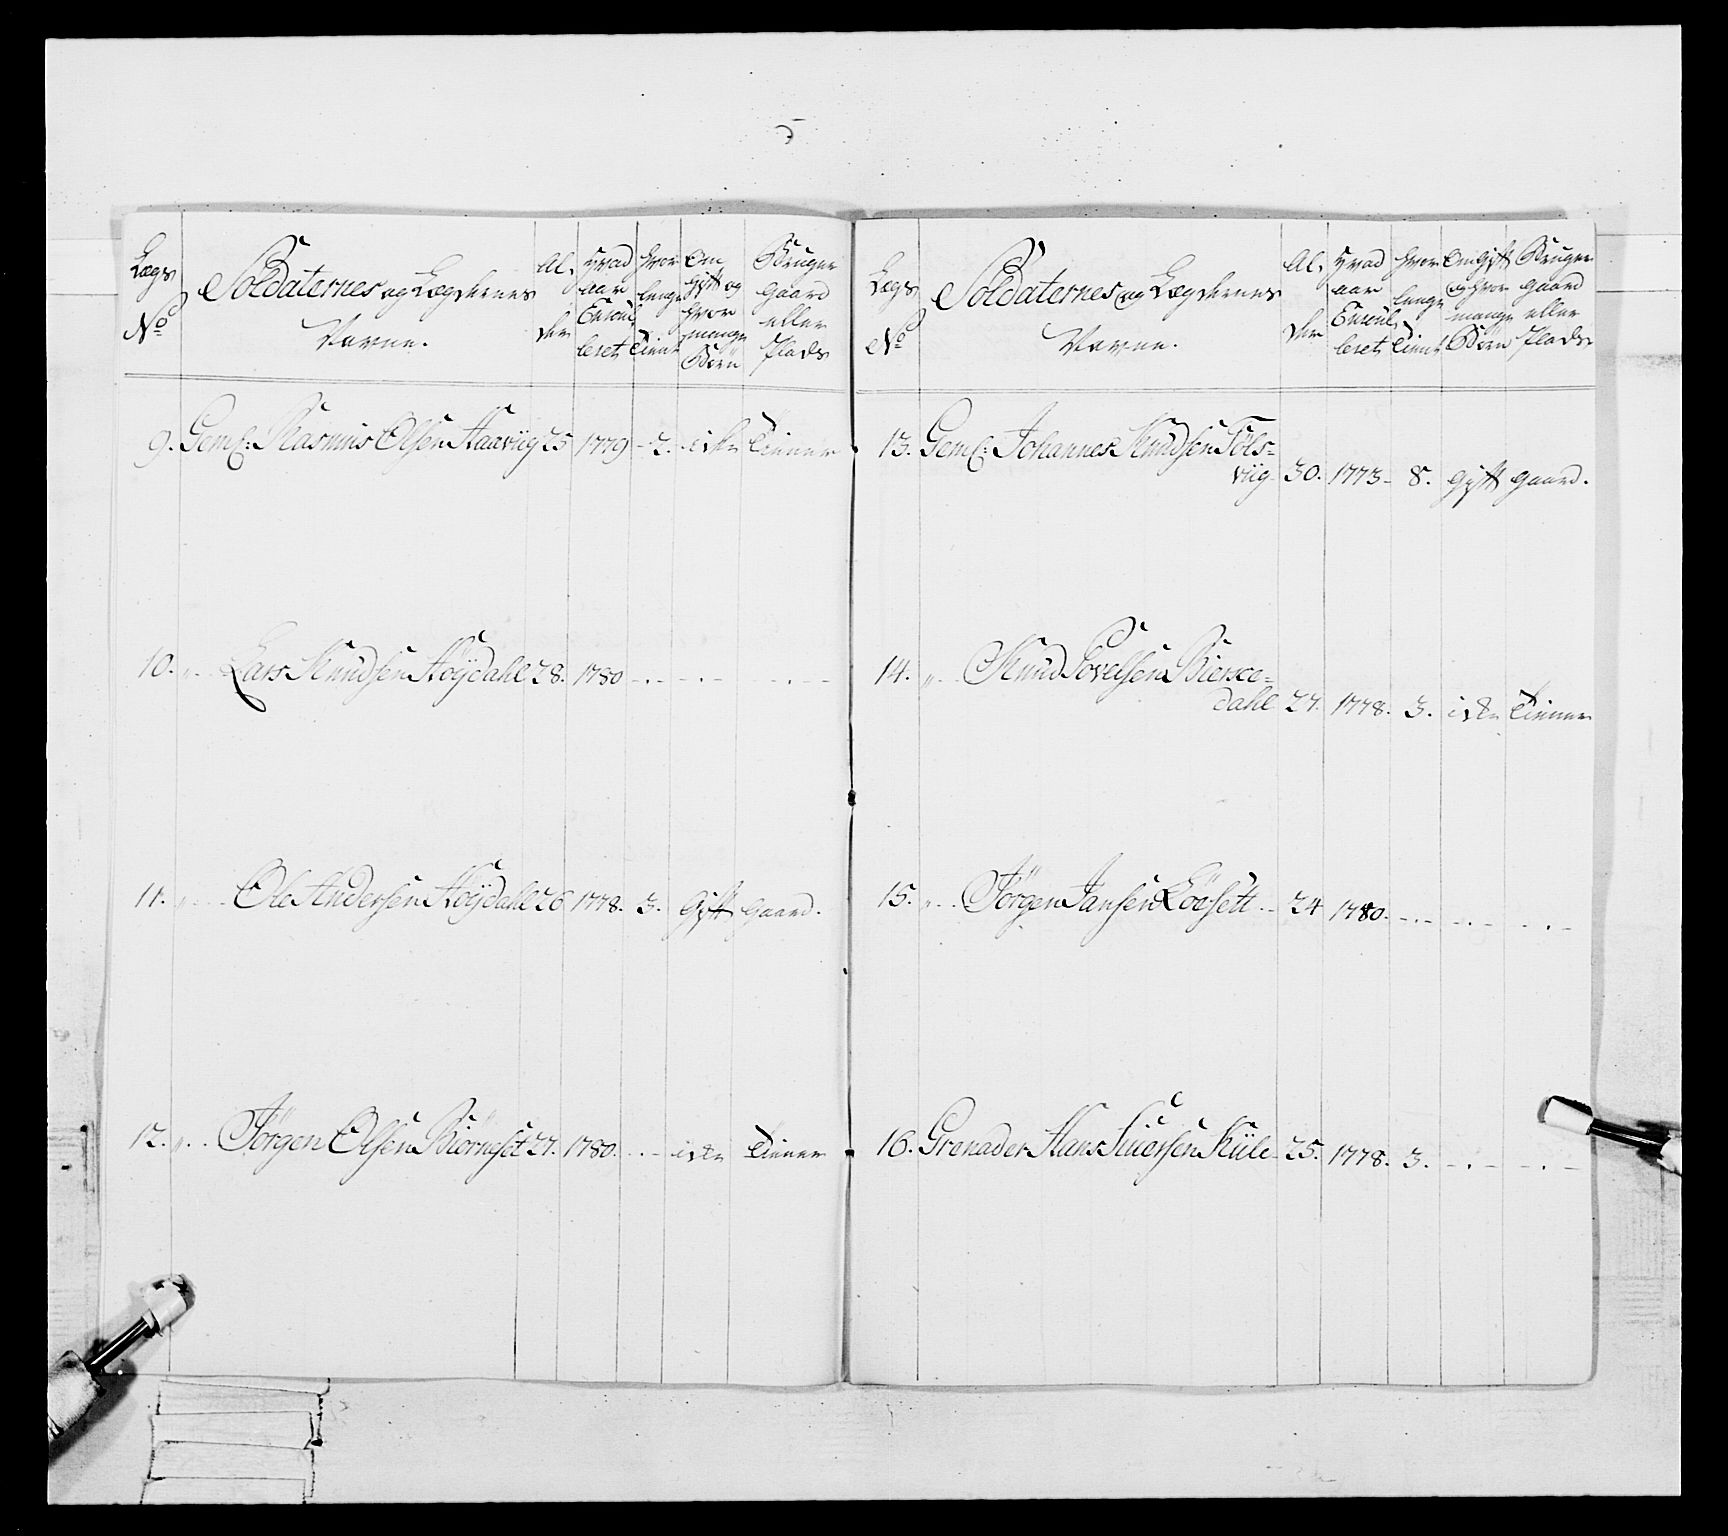 Lægs No
Soldaternes og Lægdernes Navne.
Al, der
Hvad aar Enroul, leret
Hvor længe Tient
Om Gift og hvor mange Børn
Bruger gaard eller Plads
9. Geml: Rasmus Olsen Aarviig 25 1779 - 2. - icke Tiener
10. „ Lars Knudsen Høÿdahl 28. 1780 - . - - . - - . -
11. „ Ole Andersen Høÿdahl 26 1778. 3. Gift gaard.
12. „ Jørgen Olsen Biørneset 27. 1780. - . - icke Tiener
Lægs No
Soldaternes og Lægdernes Navne.
Al, der
Hvad aar Enroul, leret
Hvor længe Tient
Om Gift og hvor mange Børn
Bruger gaard eller Plads
13. Geml: Johannes Knudsen Søls=
viig 30. 1773 - 8. gift gaard.
14. „ Knud Povelsen Biersce=
dahl 27. 1778. 3. icke Tiener
15. „ Jørgen Jansen Löesett - 24 1780. - . - - . - - . -
16. Grenader Hans Siversen Küle 25. 1778. 3. - . - - . -